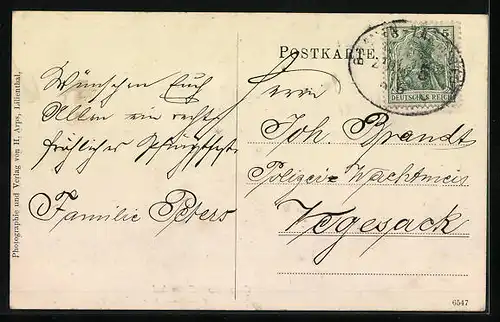 Photographie und Verlag von H. Arps, Lilienthal.
Wünschen Euch
Allen ein recht
fröhliches Pfingstfest
Familie Peters
POSTKARTE.
5 5
DEUTSCHES REICH
Herrn
Joh. Brandt
Polizei-Wachtmeis
Vegesack
6547